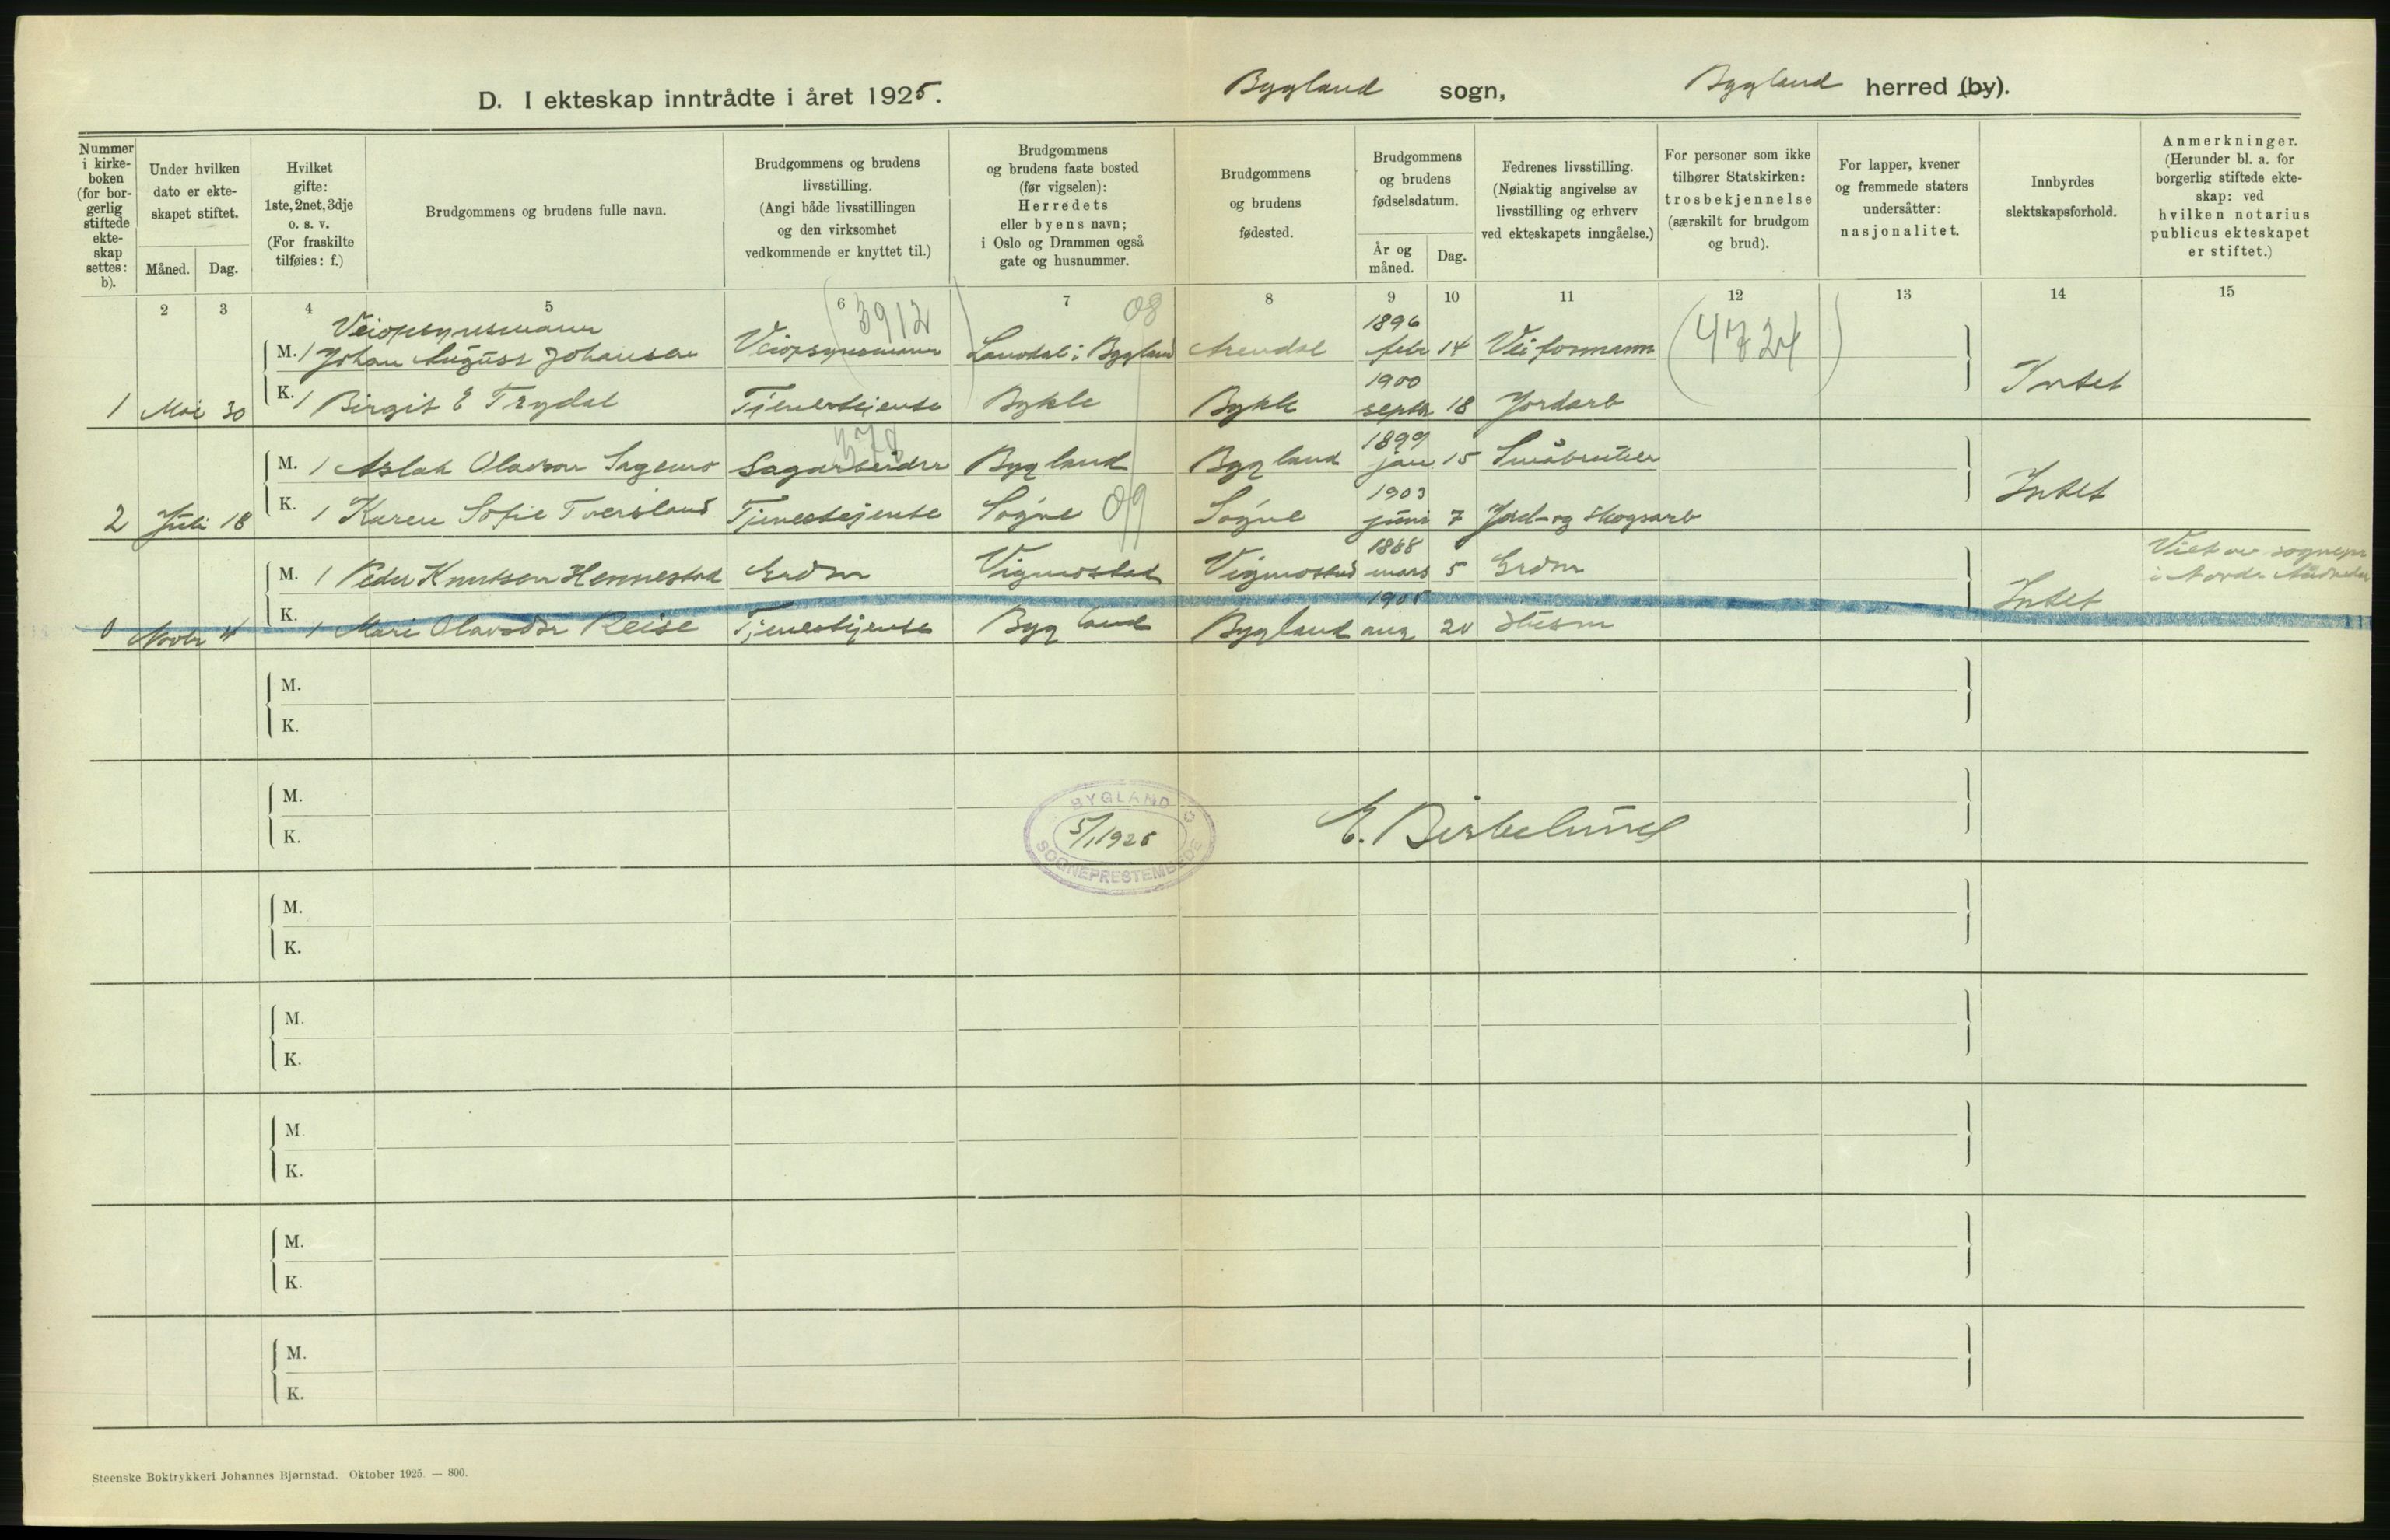 D. I ekteskap inntrådte i året 1925. Bygland sogn, Bygland herred (by).
Nummer i kirke-boken (for bor-gerlig stiftede ekte-skap settes: b).
Under hvilken dato er ekte-skapet stiftet.
Måned. Dag.
Hvilket gifte: 1ste, 2net, 3dje o. s. v. (For fraskilte tilføies: f.)
Brudgommens og brudens fulle navn.
Brudgommens og brudens livsstilling. (Angi både livsstillingen og den virksomhet vedkommende er knyttet til.)
Brudgommens og brudens faste bosted (før vigselen): Herredets eller byens navn; i Oslo og Drammen også gate og husnummer.
Brudgommens og brudens fødested.
Brudgommens og brudens fødselsdatum.
År og måned. Dag.
Fedrenes livsstilling. (Nøiaktig angivelse av livsstilling og erhverv ved ekteskapets inngåelse.)
For personer som ikke tilhører Statskirken: trosbekjennelse (særskilt for brudgom og brud).
For lapper, kvener og fremmede staters undersåtter: nasjonalitet.
Innbyrdes slektskapsforhold.
Anmerkninger. (Herunder bl. a. for borgerlig stiftede ekte-skap: ved hvilken notarius publicus ekteskapet er stiftet.)
2 3 4 5 6 7 8 9 10 11 12 13 14 15
Veiopsynsmann (3912) 08 1896 (4724)
M. 1 Johan August Johansen Veiopsynsmann Lauvdal i Bygland Arendal febr 14 Veiformann
1900
1 Mai 30 K. 1 Birgit E Trydal Tjenestejente Bykle Bykle septbr 18 Jordarb Intet
378 1899
M. 1 Aslak Olavson Sagemo Sagarbeider Bygland Bygland jan 15 Småbruker
1903
2 Juli 18 K. 1 Karen Sofie Tveisland Tjenestejente Søgne 09 Søgne juni 7 Jord- og skogsarb Intet
1868
M. 1 Peder Knutsen Hennestad Grdbr Vigmostad Vigmostad mars 5 Grdbr Viet av sognepr
i Nordr Audnedal
1905
0 Novbr 4 K. 1 Mari Olavsdtr Reise Tjenestejente Bygland Bygland aug 20 Husm Intet
M.
K.
M.
K.
BYGLAND SOGNEPRESTEMBEDE
5/1 1926
E. Birkelund
M.
K.
M.
K.
M.
K.
M.
K.
M.
K.
Steenske Boktrykkeri Johannes Bjørnstad. Oktober 1925. — 800.